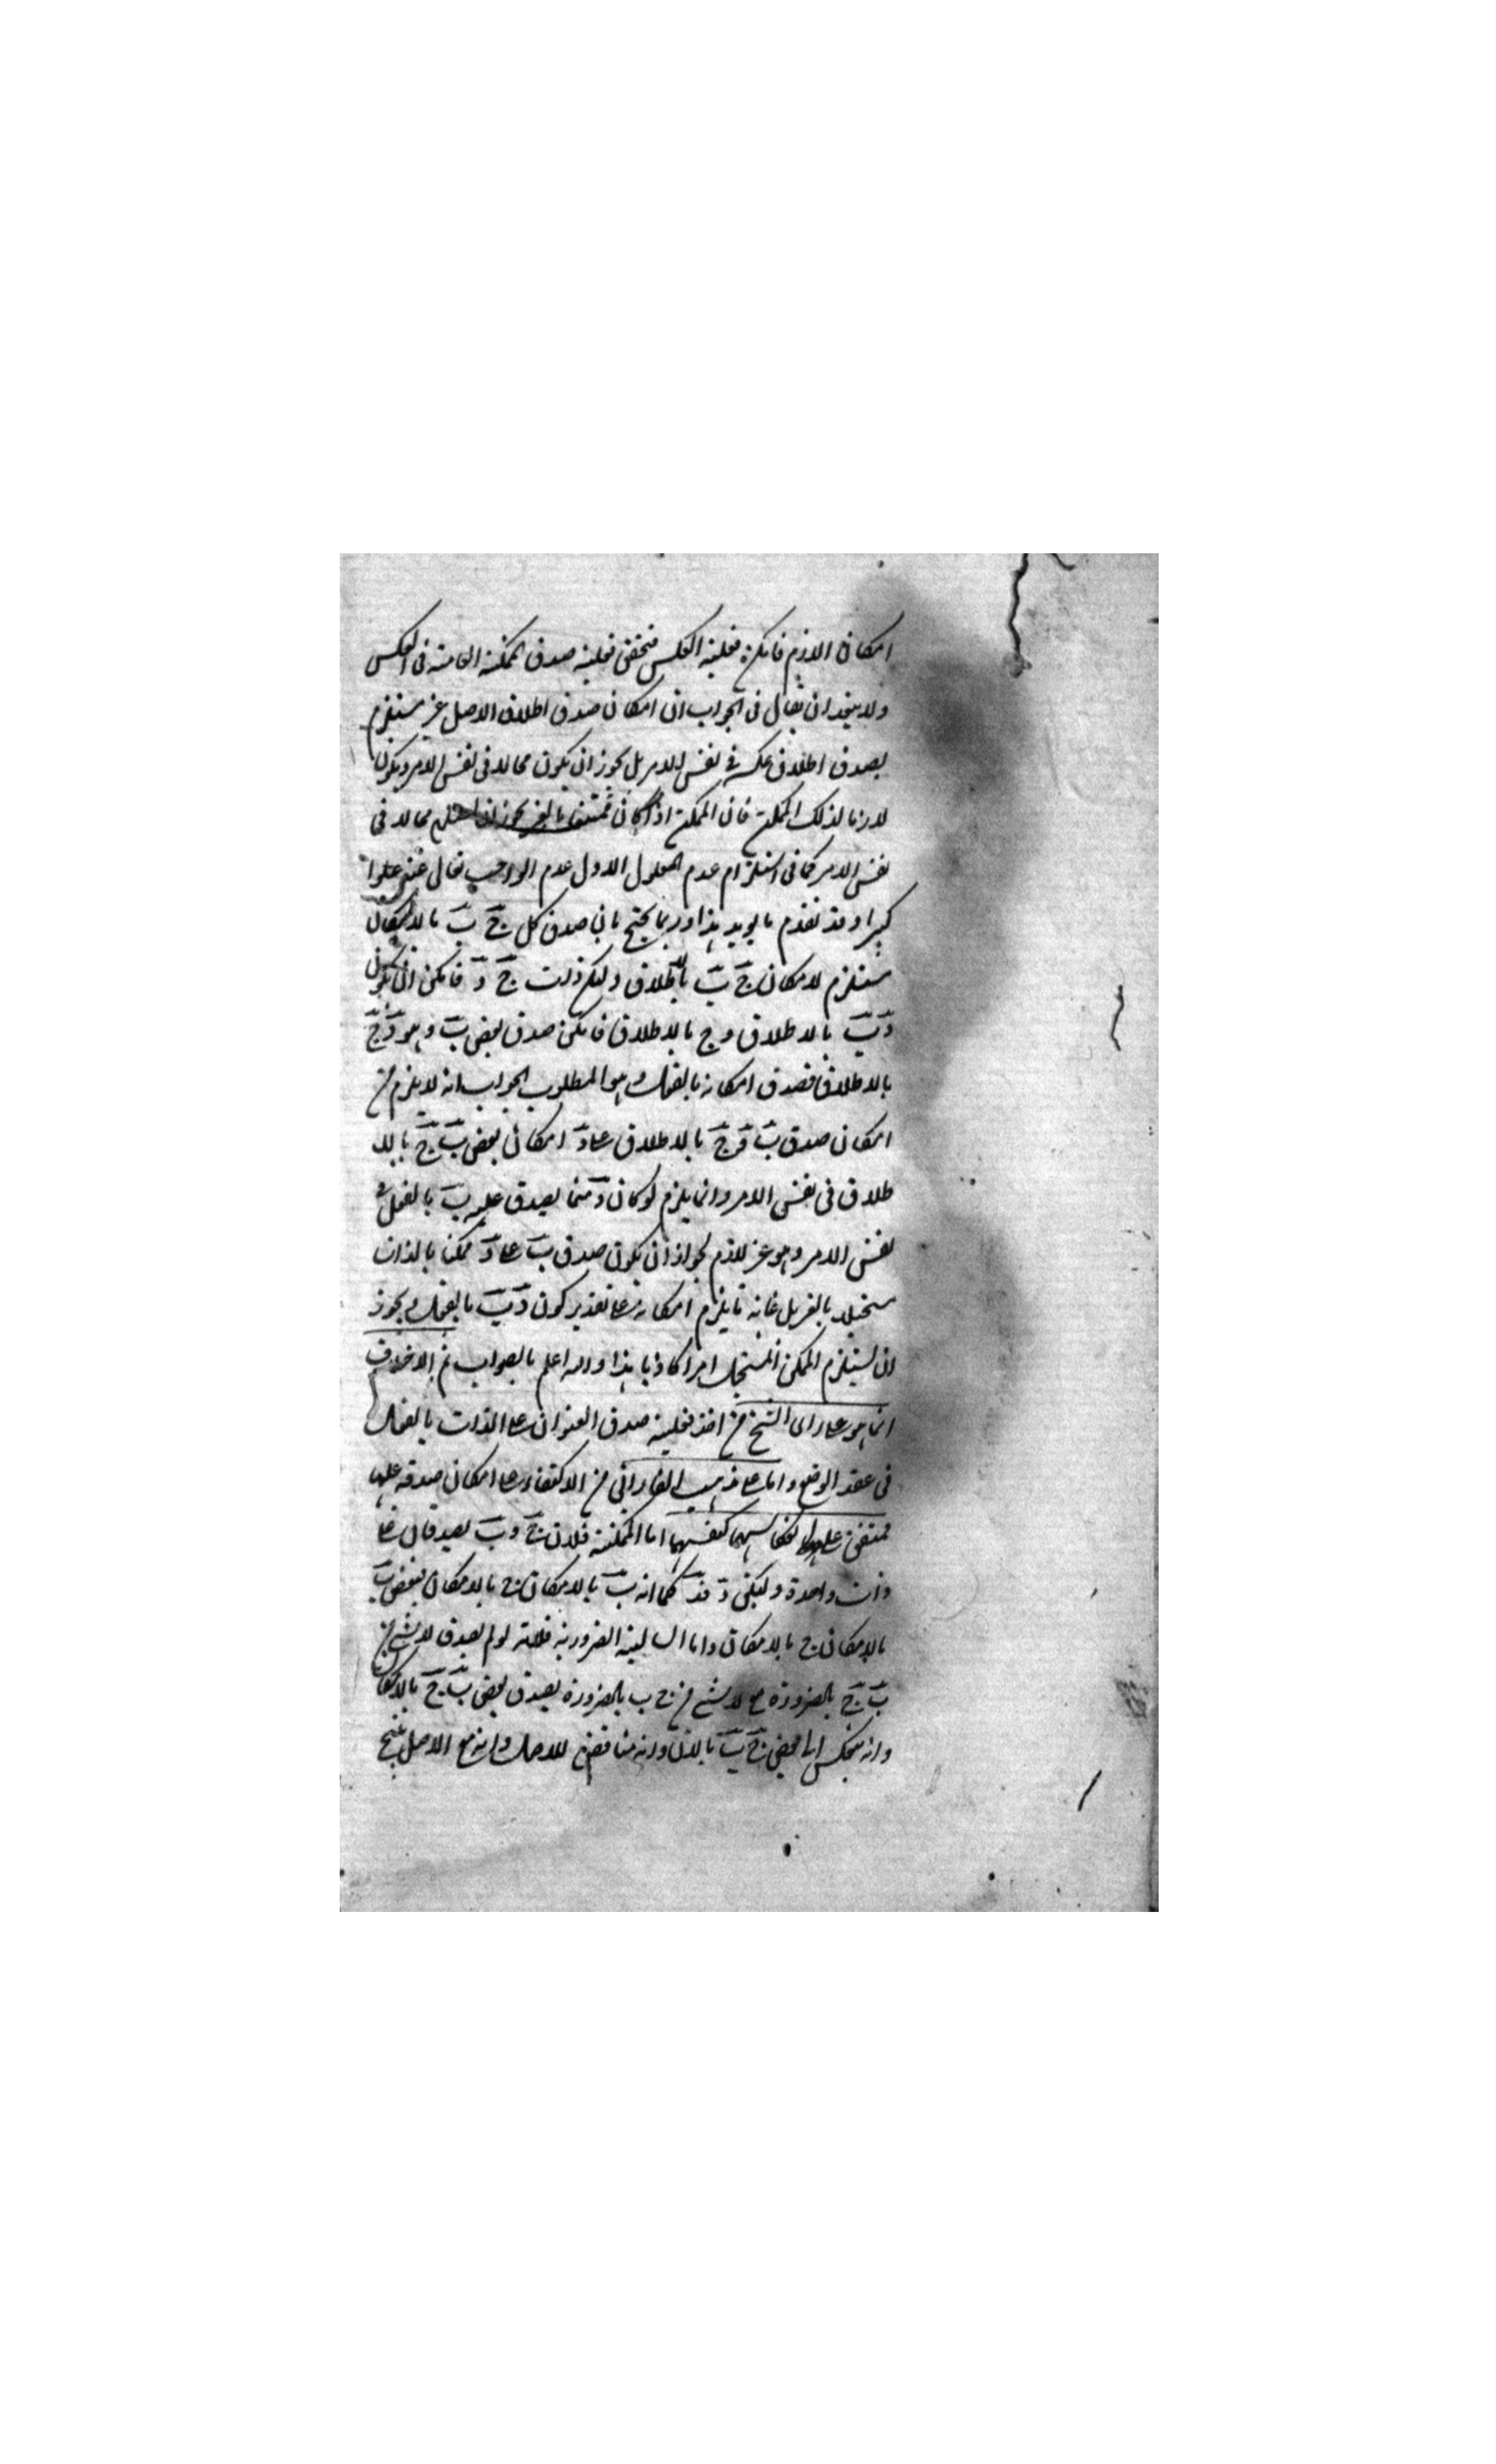 امكان اللازم فامكن فعلية العكس فتحقق فعلية صدق الممكنة العامة فى العكس
ولا يبعد ان يقال فى الجواب ان امكان صدق اطلاق الاصل غير مستلزم
لصدق اطلاق عكسه فى نفس الامر بل يجوز ان يكون محالا فى نفس الامر ويكون
لازما لذلك الممكن فان الممكن اذا كان ممتنعا بالغير يجوز ان محالا فى
نفس الامر كما فى استلزام عدم المعلول الاول عدم الواجب تعالى عنه علوا
كبيرا وقد تقدم ما يويد هذا وربما يحتج بان صدق كل ج ب بالامكان
مستلزم لامكان ج ب بالاطلاق وليكن ذات ج د فامكن ان يكون
د ب بالاطلاق و ج بالاطلاق فامكن صدق بعض ب وهو د ج
بالاطلاق فصدق امكانه بالفعل وهو المطلوب الجواب انه لا يلزم من
امكان صدق ب و ج بالاطلاق على د امكان بعض ب ج بالا
طلاق فى نفس الامر وانما يلزم لو كان د مما يصدق عليه ب بالفعل فى
نفس الامر وهو غير لازم لجواز ان يكون صدق ب على د ممكنا بالذات
مستحيلا بالغير بل غايته ما يلزم امكانه على تقدير كون د ب بالفعل ويجوز
ان يستلزم الممكن المستحيل امرا كاذبا هذا والله اعلم بالصواب ثم الاختلاف
انما هو على راى الشيخ من اخذ فعلية صدق العنوان على الذات بالفعل
فى عقد الوضع واما على مذهب الفارابى من الاكتفاء على امكان صدقه عليها
فمتفق على انعكاسهما كنفسهما اما الممكنة فلان ج و ب يصدقان على
ذات واحدة وليكن د فد كما انه ب بالامكان ج بالامكان فبعض ب
بالامكان ج بالامكان واما السالبة الضرورية فلانه لو لم يصدق لا شئ من
ب ج بالضرورة مع لا شئ من ج ب بالضرورة يصدق بعض ب ج بالامكان
وانه ينعكس الى بعض ج ب وانه مناقض للاصل وانه مع الاصل ينتج